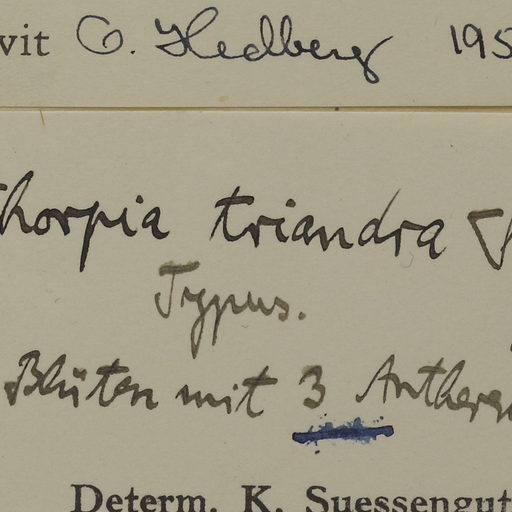 vit O. Hedberg 195
thorpia triandra
Typus.
Blüten mit 3 Anthere
Determ. K. Suessengut